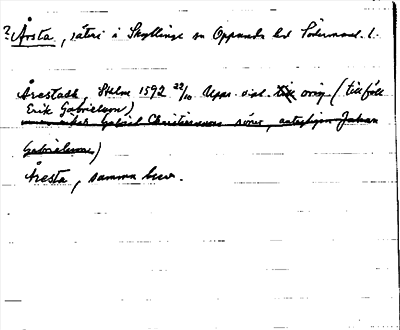 ? Årsta, säteri i Skyllinge sn Oppunda hd Södermanl. l.
Årestadh, Sthlm 1592 22/10 Upps. orig. (tillföll
Erik Gabrielson)
Gabriel Christiernsons söner, Johan
Gabrielsson)
Åresta, samma brev.